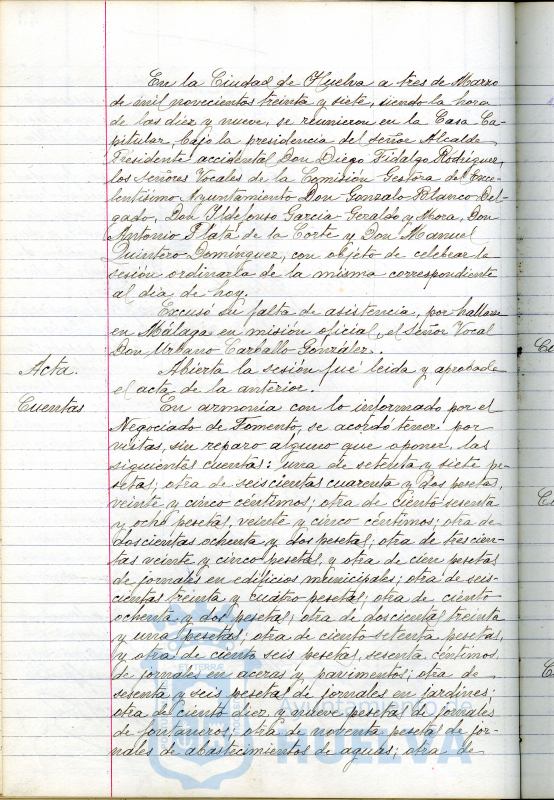 En la Ciudad de Huelva a tres de Marzo
de mil novecientos treinta y siete, siendo la hora
de las diez y nueve, se reunieron en la Casa Ca-
pitular, bajo la presidencia del señor Alcalde
Presidente accidental Don Diego Fidalgo Rodríguez,
los Señores Vocales de la Comisión Gestora del Exce-
lentísimo Ayuntamiento Don Gonzalo Blanco Del-
gado, Don Ildefonso García Geraldo y Mora, Don
Antonio Plata de la Corte y Don Manuel
Quintero Domínguez, con objeto de celebrar la
sesión ordinaria de la misma correspondiente
al día de hoy.
Excusó su falta de asistencia, por hallarse
en Málaga en misión oficial, el Señor Vocal
Don Urbano Carballo González.
Acta.
Abierta la sesión fué leida y aprobada
el acta de la anterior.
Cuentas
En armonía con lo informado por el
Negociado de Fomento, se acordó tener por
vistas, sin reparo alguno que oponer, las
siguientes cuentas: una de setenta y siete pe-
setas; otra de seiscientas cuarenta y dos pesetas,
veinte y cinco céntimos; otra de ciento sesenta
y ocho pesetas, veinte y cinco céntimos; otra de
doscientas ochenta y dos pesetas; otra de trescien-
tas veinte y cinco pesetas, y otra de cien pesetas
de jornales en edificios municipales; otra de seis-
cientas treinta y cuatro pesetas; otra de ciento
ochenta y dos pesetas; otra de doscientas treinta
y una pesetas; otra de ciento setenta pesetas,
y otra de ciento seis pesetas, sesenta céntimos
de jornales en aceras y pavimentos; otra de
sesenta y seis pesetas de jornales en jardines;
otra de ciento diez y nueve pesetas de jornales
de fontaneros; otra de noventa pesetas de jor-
nales de abastecimientos de aguas; otra de
Ayuntamiento de
HUELVA